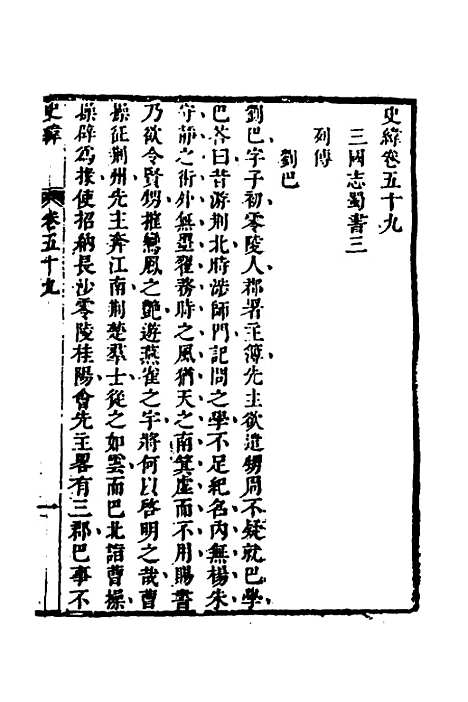 史緯卷五十九
三國志蜀書三
列傳
劉巴
劉巴字子初零陵人郡署主簿先主欲遣甥周不疑就巴學
巴答曰昔游荆北時涉師門記問之學不足紀名內無楊朱
守靜之術外無墨翟務時之風猶天之南箕虛而不用賜書
乃欲令賢甥摧鸞鳳之艷遊燕雀之宇將何以啓明之哉曹
操征荆州先主奔江南荆楚羣士從之如雲而巴北詣曹操
操辟爲掾使招納長沙零陵桂陽會先主畧有三郡巴事不
史緯 卷五十九 一